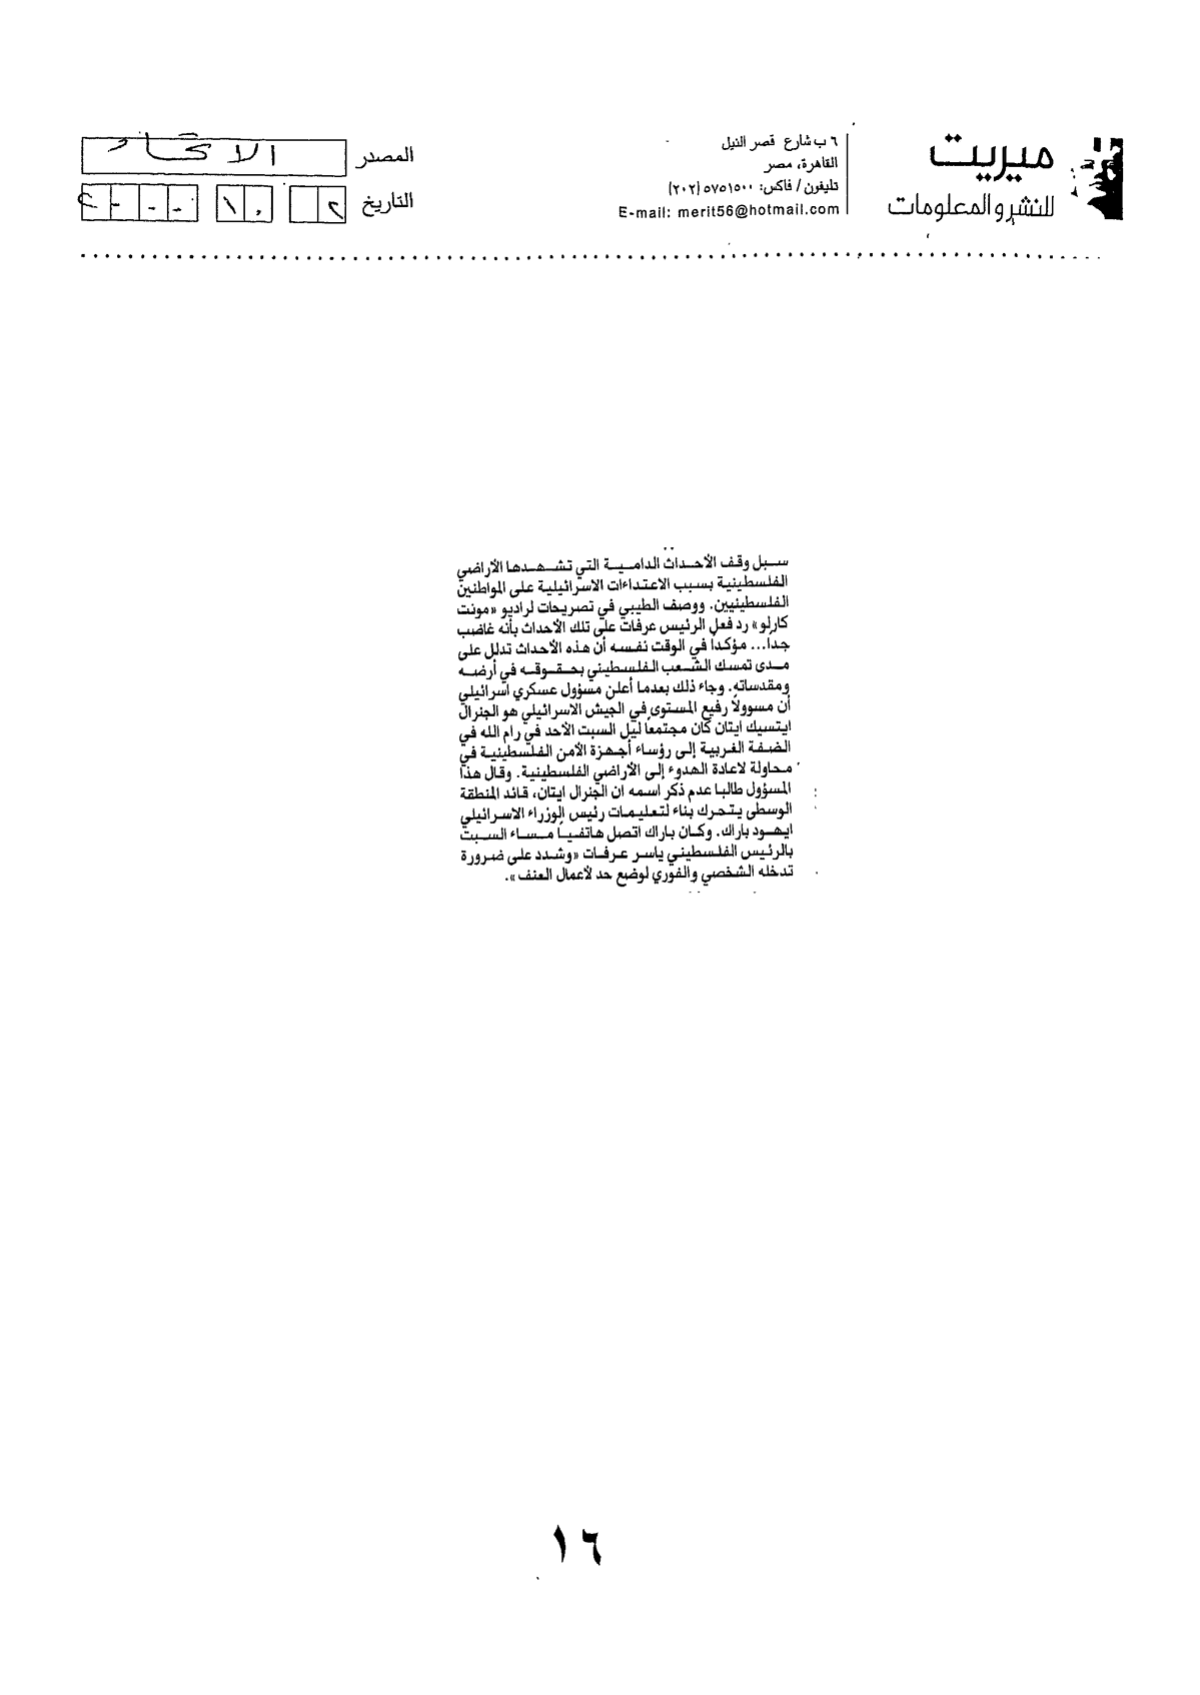 ميريت
للنشر والمعلومات
٦ ب شارع قصر النيل
القاهرة، مصر
تليفون / فاكس: ٥٧٥١٥٠٠ (٢٠٢)
E-mail: merit56@hotmail.com
المصدر الاتحاد
التاريخ ٢ ١٠
سبل وقف الأحداث الدامية التي تشهدها الأراضي
الفلسطينية بسبب الاعتداءات الاسرائيلية على المواطنين
الفلسطينيين. ووصف الطيبي في تصريحات لراديو «مونت
كارلو» رد فعل الرئيس عرفات على تلك الأحداث بأنه غاضب
جداً... مؤكداً في الوقت نفسه أن هذه الأحداث تدلل على
مدى تمسك الشعب الفلسطيني بحقوقه في أرضه
ومقدساته. وجاء ذلك بعدما أعلن مسؤول عسكري اسرائيلي
أن مسوولاً رفيع المستوى في الجيش الاسرائيلي هو الجنرال
ايتسيك ايتان كان مجتمعاً ليل السبت الأحد في رام الله في
الضفة الغربية إلى رؤساء أجهزة الأمن الفلسطينية في
محاولة لاعادة الهدوء إلى الأراضي الفلسطينية. وقال هذا
المسؤول طالبا عدم ذكر اسمه ان الجنرال ايتان، قائد المنطقة
الوسطى يتحرك بناء لتعليمات رئيس الوزراء الاسرائيلي
ايهود باراك. وكان باراك اتصل هاتفياً مساء السبت
بالرئيس الفلسطيني ياسر عرفات «وشدد على ضرورة
تدخله الشخصي والفوري لوضع حد لأعمال العنف».
١٦